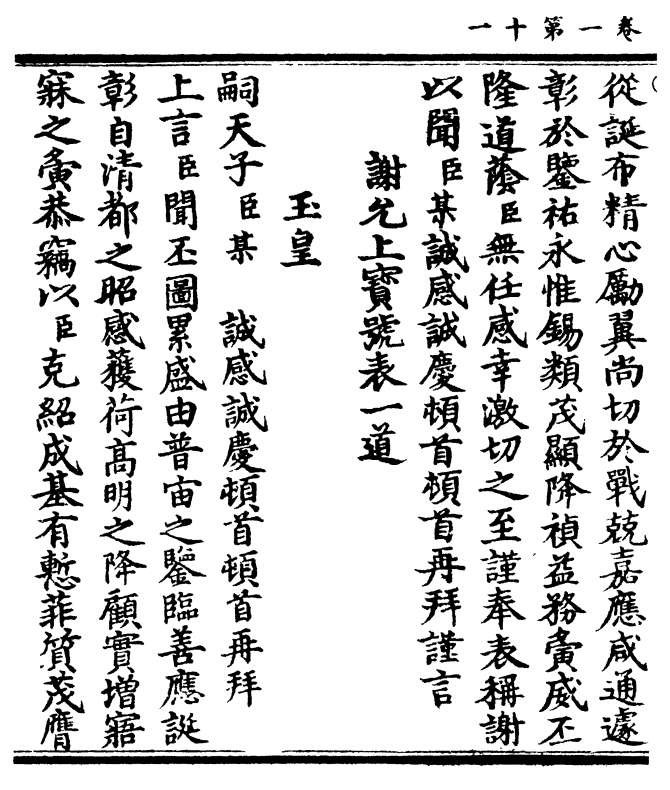 卷一第十一
從誕布精心勵翼尚切於戰兢嘉應咸通遽
彰於鑒祐永惟錫類茂顯降禎益務夤威丕
隆道蔭臣無任感幸激切之至謹奉表稱謝
以聞臣某誠感誠慶頓首頓首再拜謹言
謝允上寶號表一道
玉皇
嗣天子臣某 誠感誠慶頓首頓首再拜
上言臣聞丕圖累盛由普宙之鑒臨善應誕
彰自清都之昭感獲荷高明之降顧實增寤
寐之夤恭竊以臣克紹成基有慙菲質茂膺